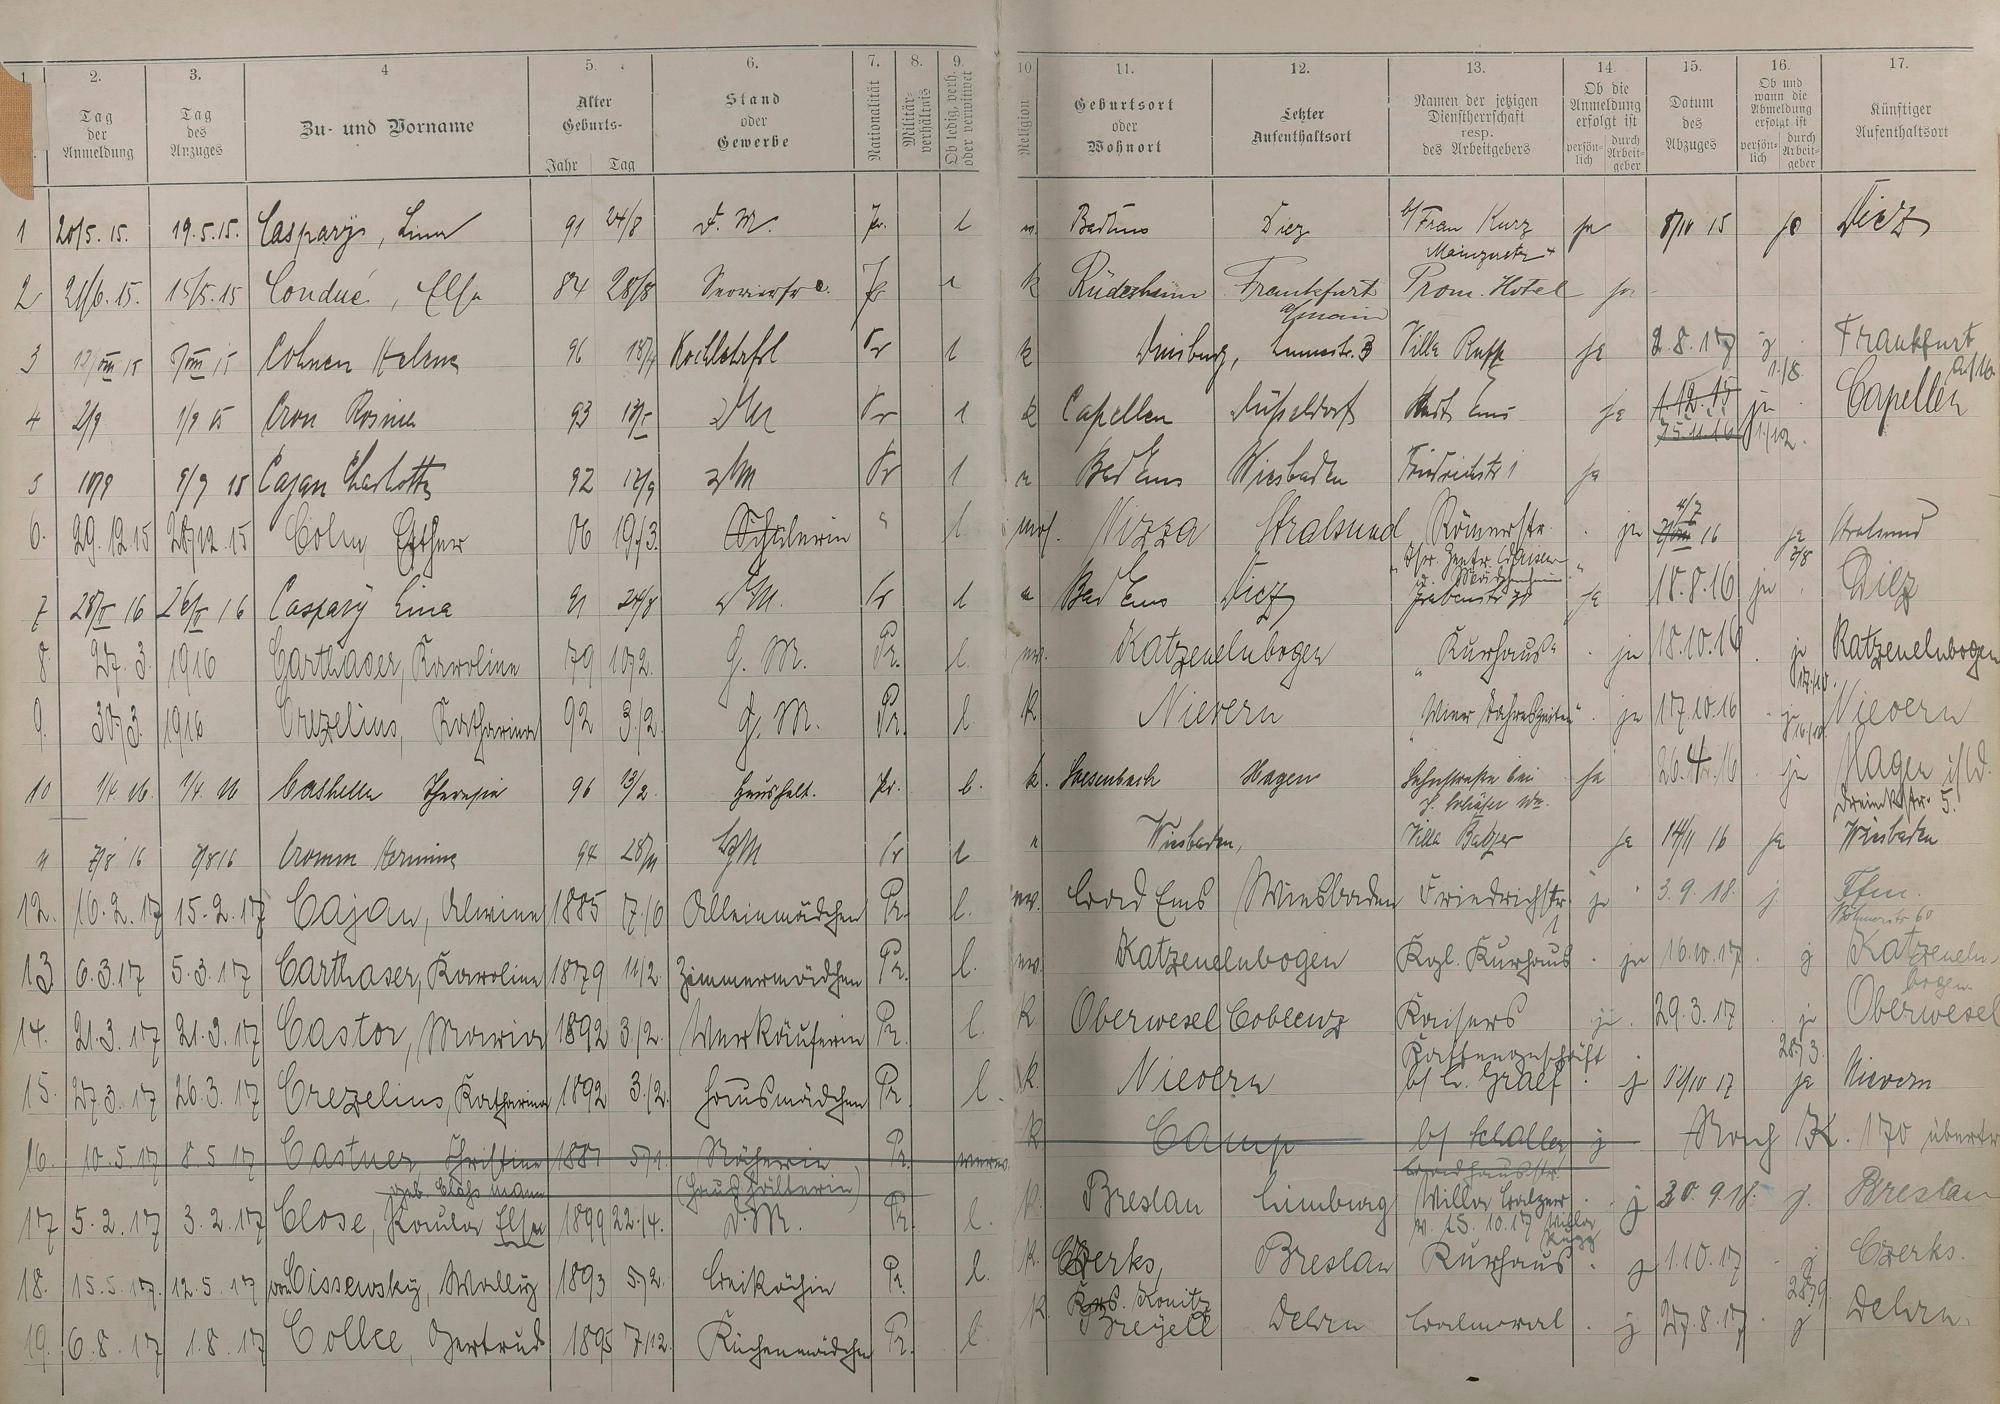 1. 2. 3. 4 5. 6. 7. 8. 9. 10 11. 12. 13. 14. 15. 16. 17.
Tag der Anmeldung
Tag des Anzuges
Zu- und Vorname
Alter Geburts-
Jahr Tag
Stand oder Gewerbe
Nationalität
Militär-verhältnis
Ob ledig, verh. oder verwitwet
Religion
Geburtsort oder Wohnort
Letzter Aufenthaltsort
Namen der jetzigen Dienstherrschaft resp. des Arbeitgebers
Ob die Anmeldung erfolgt ist
persön-lich durch Arbeit-geber
Datum des Abzuges
Ob und wann die Abmeldung erfolgt ist
persön-lich durch Arbeit-geber
Künftiger Aufenthaltsort
1 20/5. 15. 19.5.15. Casparÿ, Lina 91 24/8 D. M. Pr. l Diez b/ Frau Kurz ja 8/10 15 ja Diez
Mainzerstr
2 21/6. 15. 15/5. 15 Condué, Elsa 84 28/8 Pr l k Rüdesheim Frankfurt Prom. Hotel ja
a/Main
3 12/VIII 15 Cohnen Helene 96 Kochlehrfrl Pr l k Duisburg, Villa ja 2.8.17 j Frankfurt
1./8. a/M.
4 2/9 1/9 15 Cron Rosina 93 Pr l k Capellen Düsseldorf Stadt Ems ja 1.12.15 ja Capellen
25.11.16 1/12.
5 10/9 9/9 15 Cajan Charlotte 92 12/9 Pr l Bad Ems Wiesbaden Friedrichstr 1 ja
6. 29.12.15 28/12.15 Cohn Esther 06 19/3. Schülerin " l mos. Nizza Stralsund Römerstr. ja 16 ja Stralsund
"Isr. Zentr. Waisen
u. Mädchenheim"
7 28/V 16 26/V 16 Casparÿ Lina 91 24/8 DM. Pr l Bad Ems Diez Grabenstr ja 18.8.16 ja Diez
8. 27.3. 1916 Carthaser, Karoline 79 10/2. H. M. Pr. l. ev. Katzenelnbogen "Kurhaus" ja 18.10.16 ja Katzenelnbogen
17./10.
9. 30/3. 1916 Crezelius, Katharina 92 3/2. H. M. Pr. l. K Nievern "Vier Jahreszeiten" ja 17.10.16 ja Nievern
16/10.
10 1/4. 16. 1/4. 16 Therese 96 13/2. Haushalt. Pr. l. k. Hagen Lahnstrasse bei ja 26.4.16 ja Hagen i/W.
11 7/8 16 7/8 16 Cromm Hermine 94 Pr l Wiesbaden, Villa Balzer ja 14/11 16 ja Wiesbaden
12. 16.2.17 15.2.17 Cajan, Alwine 1885 7/6 Alleinmädchen Pr. l. ev. Bad Ems Wiesbaden Friedrichstr. 1 ja 3.9.18. j. Ffm.
13 6.3.17 5.3.17 Carthaser, Karoline 1879 11/2. Zimmermädchen Pr. l. ev. Katzenelnbogen Kgl. Kurhaus ja 16.10.17 j Katzeneln-
bogen
14. 21.3.17 21.3.17 Castor, Maria 1892 3/2. Verkäuferin Pr. l. K Oberwesel Coblenz Kaisers ja. 29.3.17 ja Oberwesel
Kaffeegeschäft 28/3.
15. 27.3.17 26.3.17 Crezelius, Katharina 1892 3/2. Hausmädchen Pr. l. K. Nievern b/ Graef j 12/10 17 ja Nievern
16. 10.5.17 8.5.17 Castner, Christine 1881 5/1. Näherin Pr. K Camp b/ Schaller j Nach K. 170 übertr
(Haushälterin)
17 5.2.17 3.2.17 Close, Paula Elsa 1899 22./4. D.M. Pr. l. K. Breslau Limburg Villa Balzer j 30.9.18. j. Breslau
v. 15.10.17 Villa
18. 15.5.17. 12.5.17 von Cissewsky, Wally 1893 5/2. Beiköchin Pr. l. K. Czerks, Breslau Kurhaus j 1.10.17 j Czerks.
Krs. Konitz 28/9
19. 6.8.17 1.8.17 Collee, Gertrud 1895 7/12. Küchenmädchen Pr. l K. Breyell Dehrn Balmoral j 27.8.17 j Dehrn.